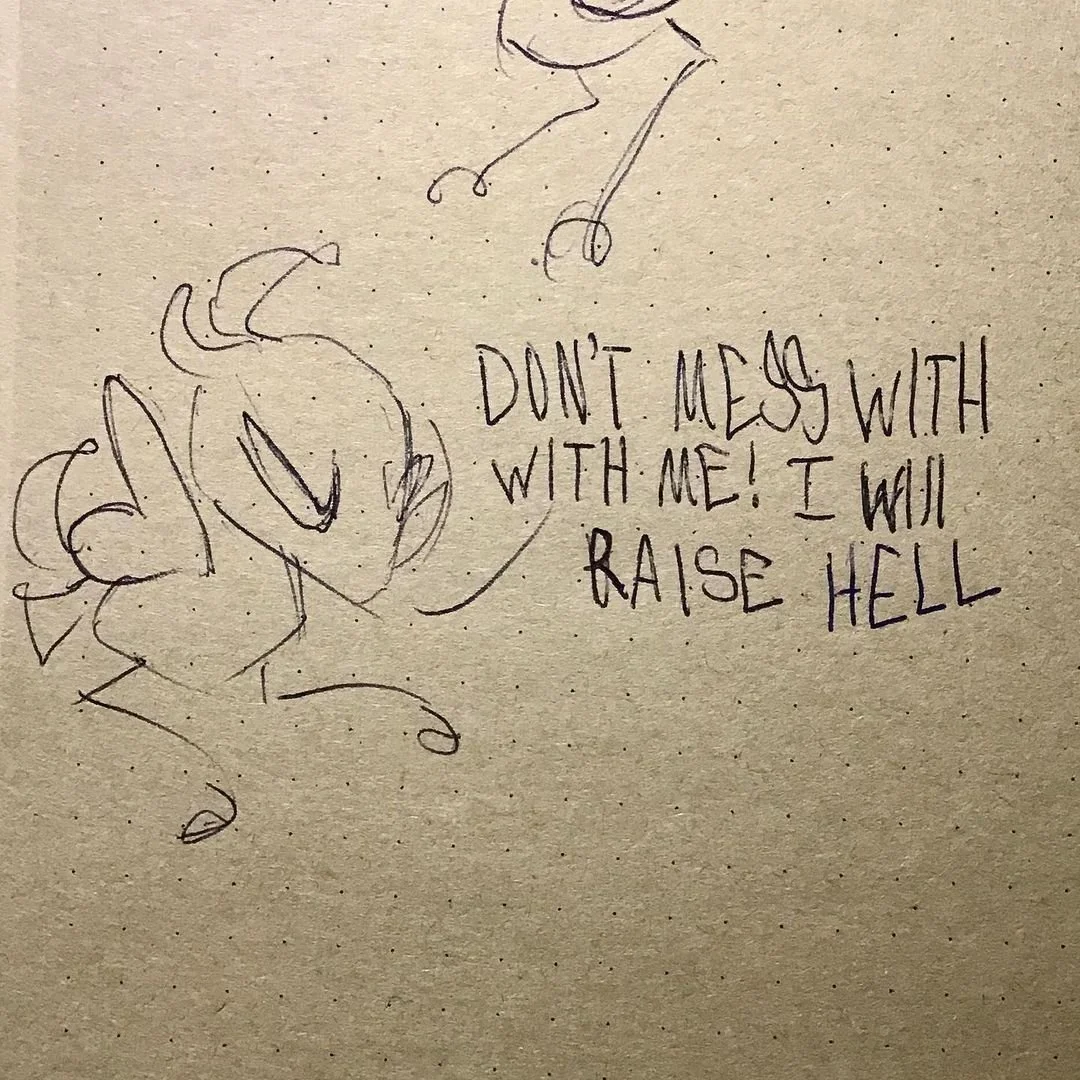 DON'T MESS WITH
WITH ME! I WILL
RAISE HELL